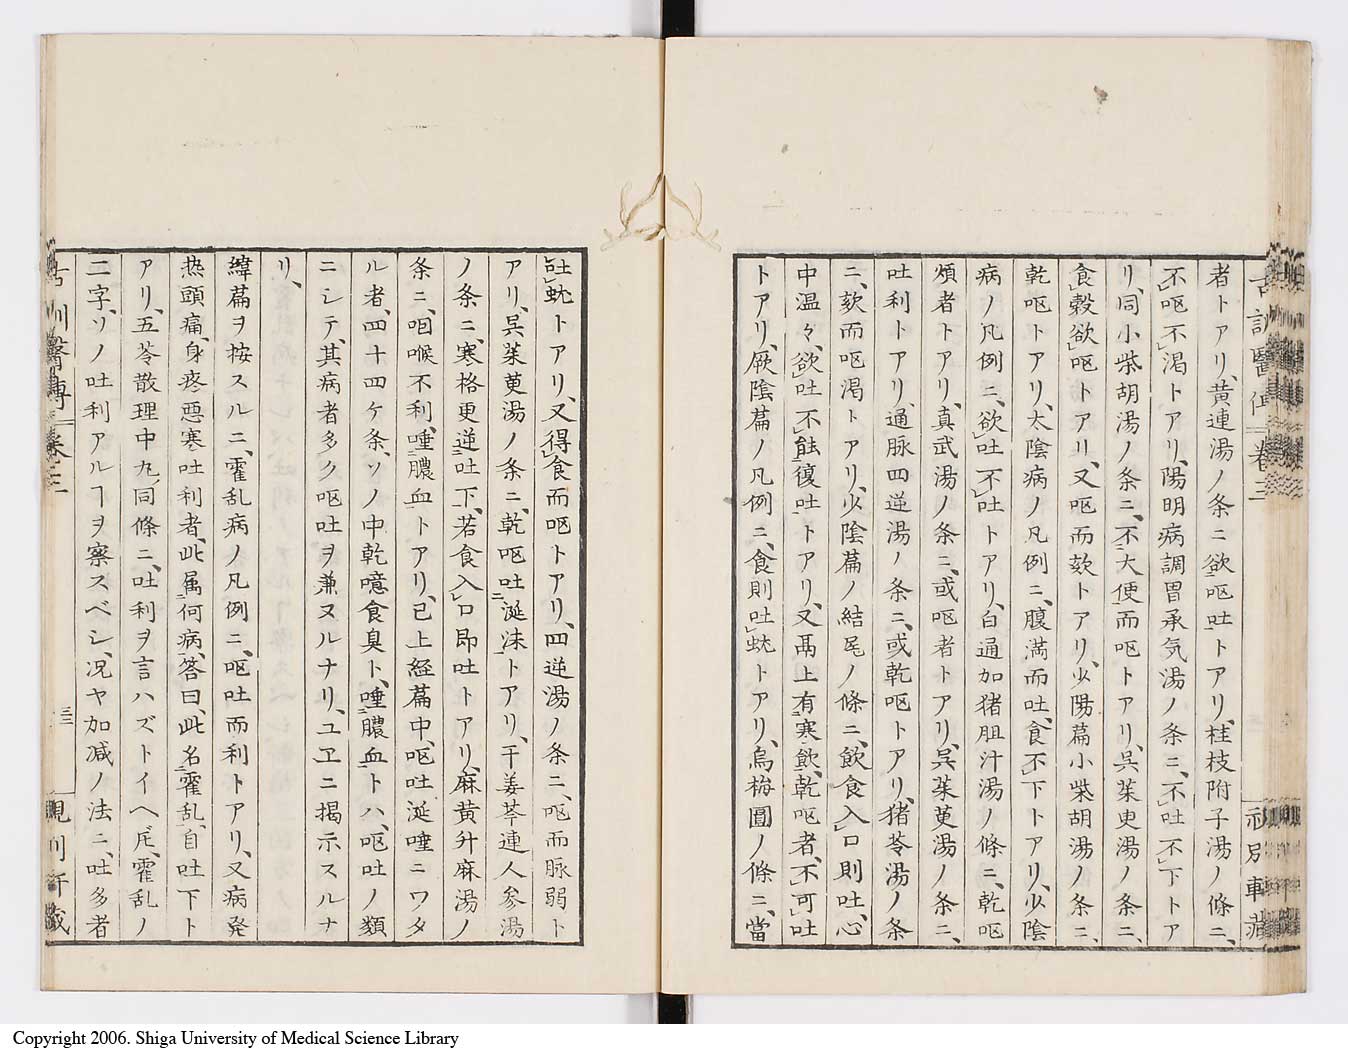 者トアリ、黄連湯ノ条ニ欲嘔吐トアリ、桂枝附子湯ノ條ニ、
不嘔不渇トアリ、陽明病調胃承気湯ノ条ニ、不吐不下トア
リ、同小柴胡湯ノ条ニ、不大便而嘔トアリ、呉茱臾湯ノ条ニ、
食穀欲嘔トアリ、又嘔而欬トアリ、少陽篇小柴胡湯ノ条ニ、
乾嘔トアリ、太陰病ノ凡例ニ、腹満而吐、食不下トアリ、少陰
病ノ凡例ニ、欲吐不吐トアリ、白通加猪胆汁湯ノ條ニ、乾嘔
煩者トアリ、真武湯ノ条ニ、或嘔者トアリ、呉茱萸湯ノ条ニ、
吐利トアリ、通脉四逆湯ノ条ニ、或乾嘔トアリ、猪苓湯ノ条
ニ、欬而嘔渇トアリ、少陰篇ノ結尾ノ條ニ、飲食入口則吐、心
中温々、欲吐不能復吐トアリ、又再上有寒飲、乾嘔者、不可吐
トアリ、厥陰篇ノ凡例ニ、食則吐蚘トアリ、烏梅圓ノ條ニ、當
吐蚘トアリ、又得食而嘔トアリ、四逆湯ノ条ニ、嘔而脉弱ト
アリ、呉茱萸湯ノ条ニ、乾嘔吐涎沫トアリ、干姜芩連人参湯
ノ条ニ、寒格更逆吐下、若食入口即吐トアリ、麻黄升麻湯ノ
条ニ、咽喉不利、唾膿血トアリ、已上経篇中、嘔吐涎唾ニワタ
ル者、四十四ケ条、ソノ中乾噫食臭ト、唾膿血トハ、嘔吐ノ類
ニシテ、其病者多ク嘔吐ヲ兼ヌルナリ、ユヱニ掲示スルナ
リ、
緯篇ヲ按スルニ、霍乱病ノ凡例ニ、嘔吐而利トアリ、又病発
热頭痛、身疼悪寒吐利者、此属何病、答曰、此名霍乱、自吐下ト
アリ、五苓散理中丸、同條ニ、吐利ヲ言ハズトイヘ𪜈、霍乱ノ
二字、ソノ吐利アルヿヲ察スベシ、况ヤ加减ノ法ニ、吐多者
古訓醫傳 卷三
三